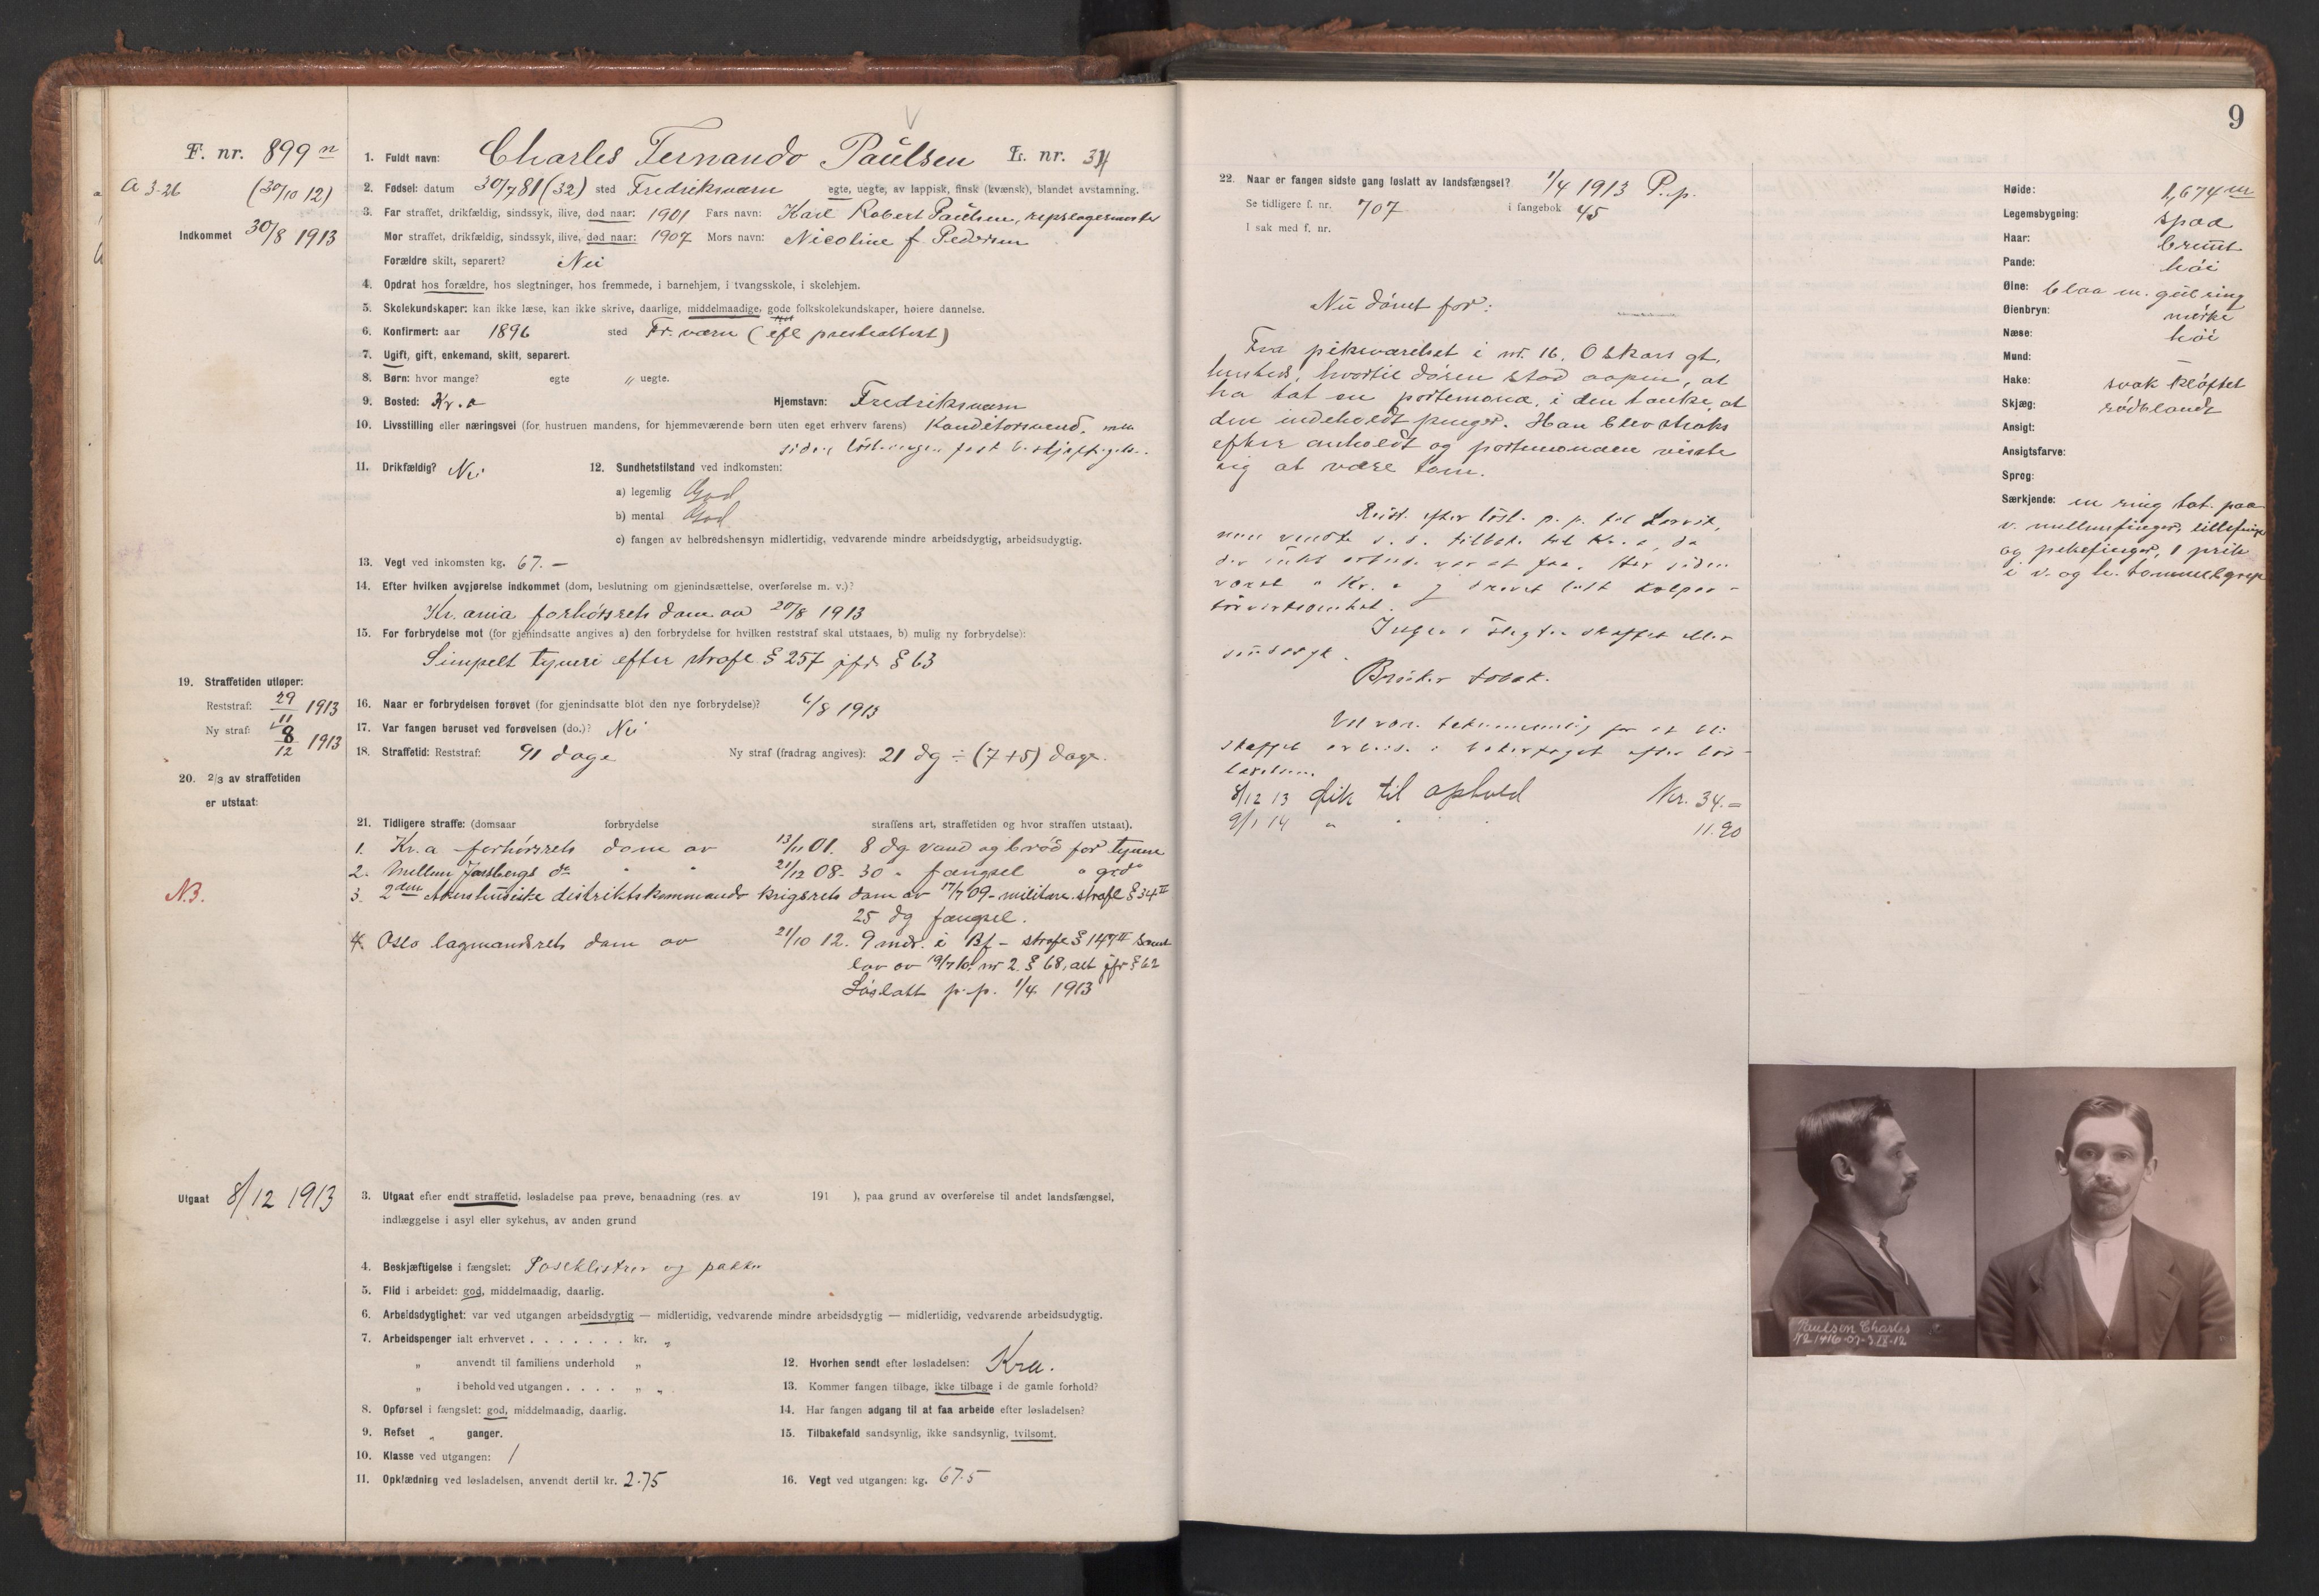 F. nr. 899 n
A 3-26
(30/10 12)
Indkommet 30/8 1913
1. Fuldt navn: Charles Fernando Paulsen L. nr. 34
2. Fødsel: datum 30/7 81 (32) sted Fredriksværn egte, uegte, av lappisk, finsk (kvænsk), blandet avstamning.
3. Far straffet, drikfældig, sindssyk, ilive, død naar: 1901 Fars navn: Karl Robert Paulsen, repslagermester
Mor straffet, drikfældig, sindssyk, ilive, død naar: 1907 Mors navn: Nicoline f. Pedersen
Forældre skilt, separert? Nei
4. Opdrat hos forældre, hos slegtninger, hos fremmede, i barnehjem, i tvangsskole, i skolehjem.
5. Skolekundskaper: kan ikke læse, kan ikke skrive, daarlige, middelmaadige, gode folkskolekundskaper, høiere dannelse.
6. Konfirmert: aar 1896 sted Fr. værn (efl presteattest)
7. Ugift, gift, enkemand, skilt, separert.
8. Børn: hvor mange? egte „ uegte.
9. Bosted: Kr.a Hjemstavn: Fredriksværn
10. Livsstilling eller næringsvei (for hustruen mandens, for hjemmeværende børn uten eget erhverv farens) Konditorsvend, men
siden
11. Drikfældig? Nei 12. Sundhetstilstand ved indkomsten:
a) legemlig God
b) mental God
c) fangen av helbredshensyn midlertidig, vedvarende mindre arbeidsdygtig, arbeidsudygtig.
13. Vegt ved inkomsten kg. 67.–
14. Efter hvilken avgjørelse indkommet (dom, beslutning om gjenindsættelse, overførelse m. v.)?
Kr.ania forhørsrets dom av 20/8 1913
15. For forbrydelse mot (for gjenindsatte angives a) den forbrydelse for hvilken reststraf skal utstaaes, b) mulig ny forbrydelse):
Simpelt tyveri efter strafl. § 257 jfr. § 63
19. Straffetiden utløper:
Reststraf: 29/11 1913
Ny straf: 8/12 1913
16. Naar er forbrydelsen forøvet (for gjenindsatte blot den nye forbrydelse)? 6/8 1913
17. Var fangen beruset ved forøvelsen (do.)? Nei
18. Straffetid: Reststraf: 91 dage Ny straf (fradrag angives): 21 dg ÷ (7+5) dage.
20. 2/3 av straffetiden
er utstaat:
21. Tidligere straffe: (domsaar forbrydelse straffens art, straffetiden og hvor straffen utstaat).
1. Kr.a forhørsrets dom av 13/11 01. 8 dg vand og brød for tyveri
2. Mellem Jarlsbergs do " " 21/12 08. 30 " fængsel " grdo
N.B.
3. 2den Akershusiske distriktskommando krigsrets dom av 17/7 09 – militær. strafl § 34 II
25 dg fængsel.
4. Oslo lagmandsrets dom av 21/10 12. 9 mdr. i Bf – strafl § 147 II samt
lov av 19/7 10. nr 2. § 68, alt jfr § 62
Løslatt p.p. 1/4 1913
Utgaat 8/12 1913
3. Utgaat efter endt straffetid, løsladelse paa prøve, benaadning (res. av 191 ), paa grund av overførelse til andet landsfængsel,
indlæggelse i asyl eller sykehus, av anden grund
4. Beskjæftigelse i fængslet: Poseklistrer og pakker
5. Flid i arbeidet: god, middelmaadig, daarlig.
6. Arbeidsdygtighet: var ved utgangen arbeidsdygtig — midlertidig, vedvarende mindre arbeidsdygtig — midlertidig, vedvarende arbeidsudygtig.
7. Arbeidspenger ialt erhvervet . . . . . . . kr. „
„ anvendt til familiens underhold „
„ i behold ved utgangen . . . . „ „
8. Opførsel i fængslet: god, middelmaadig, daarlig.
9. Refset „ ganger.
10. Klasse ved utgangen: 1
11. Opklædning ved løsladelsen, anvendt dertil kr. 2.75
12. Hvorhen sendt efter løsladelsen: Kra.
13. Kommer fangen tilbage, ikke tilbage i de gamle forhold?
14. Har fangen adgang til at faa arbeide efter løsladelsen?
15. Tilbakefald sandsynlig, ikke sandsynlig, tvilsomt.
16. Vegt ved utgangen: kg. 67.5
9
22. Naar er fangen sidste gang løslatt av landsfængsel? 1/4 1913 P.p.
Se tidligere f. nr. 707 i fangebok 45
I sak med f. nr.
Nu dømt for:
Fra pikeværelset i nr. 16, Oskars gt.
hvortil døren stod aapen, at
ha tat en portemonæ, i den tanke, at
den indeholdt penger. Han blev straks
efter anholdt og portemonæen viste
sig at være tom.
Reist efter løsl. p.p. til Larvik,
men vendte s. d. tilbake til Kr.a, da
der intet arbeide var at faa. Har siden
været i Kr.a og drevet litt kolpor-
tørvirksomhet.
Ingen i slegten straffet eller
sindssyk.
Bruker tobak.
Vil være taknemmelig for at bli
skaffet arbeide i bakerfaget efter løs-
latelsen.
8/12 13 fik til ophold Kr. 34.=
9/1 14 " " " 11.90
Høide: 1,674 m
Legemsbygning: spæd
Haar: brunt
Pande: høi
Øine: blaa m. gul ring
Øienbryn: mørke
Næse: høi
Mund: –
Hake: svak kløftet
Skjæg: rødblondt
Ansigt:
Ansigtsfarve:
Sprog:
Særkjende: en ring tat. paa
v. mellemfinger, lillefinger
og pekefinger, 1 prik
i v. og h. tommelgrep
Paulsen Charles